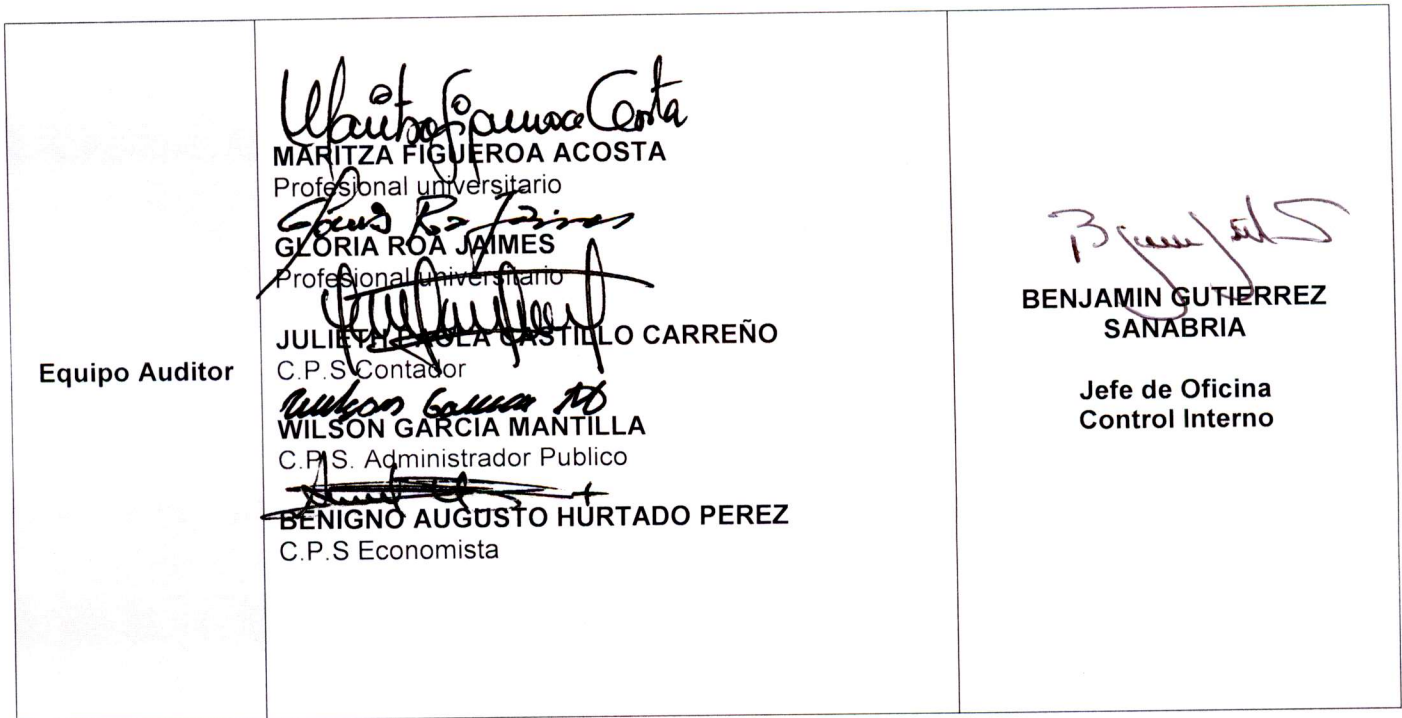 Equipo Auditor
MARITZA FIGUEROA ACOSTA
Profesional universitario
GLORIA ROA JAIMES
Profesional universitario
JULIETH PAOLA CASTILLO CARREÑO
C.P.S Contador
WILSON GARCIA MANTILLA
C.P.S. Administrador Publico
BENIGNO AUGUSTO HURTADO PEREZ
C.P.S Economista
BENJAMIN GUTIERREZ
SANABRIA
Jefe de Oficina
Control Interno